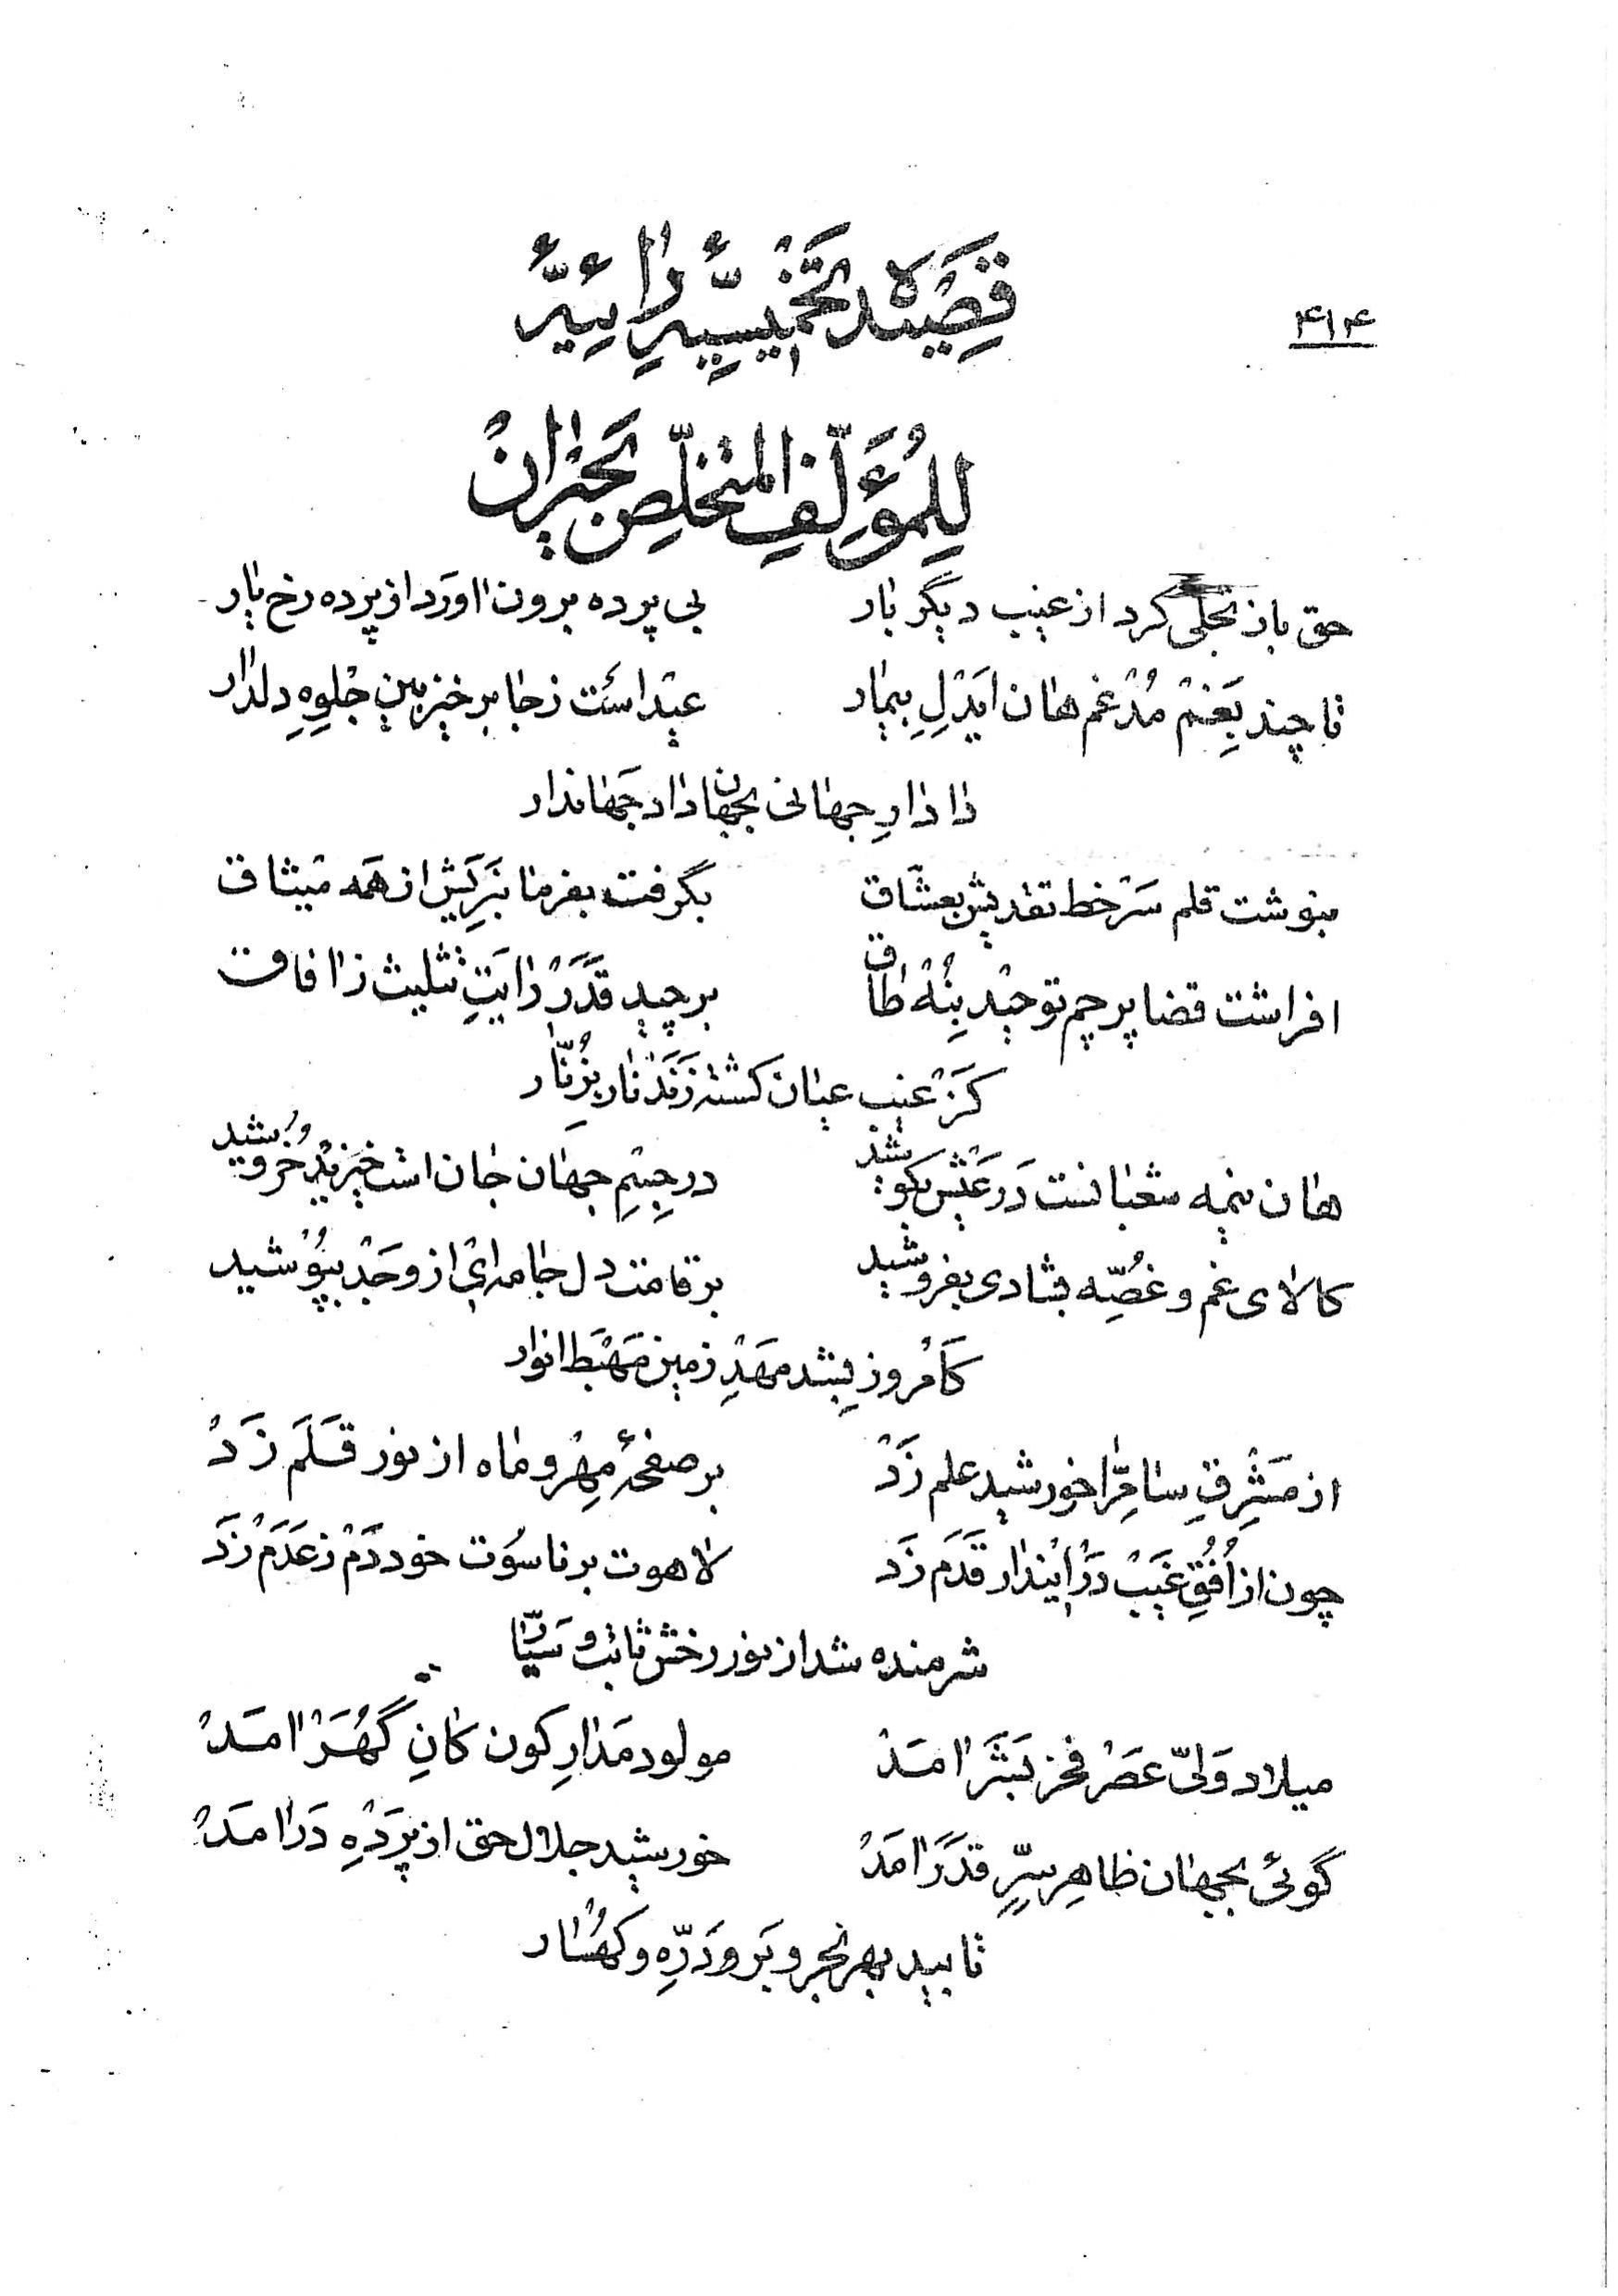 ۴۱۴
قصیده تخمیسیّه رائیّه
لِلمُؤَلِّفِ المتخلّصِ بحَیرانْ
حق باز تجلّی کرد از غیب دیگر بار    بی پرده برون اورد از پرده رخ یار
تا چند بِغَمْ مُدْغم هان ایدْلِ بیمار    عید اسَت ز جا بر خیز بین جلوِهِ دلدار
دادارِ جهانی بجهان داد جَهاندار
بنوشت قلم سَرْ خط تقدیش بعشّاق    بگرفت بفرمانبَرِیَش از هَمه میثاق
افراشت قضا پرچم توحید بِنُهْ طاق    بر چید قَدَرْ رایَتِ تثلیث ز افاق
کَزْ غیب عیان گشته زَنَدْ نار بِزُنّار
هان نیمه شعبانست دَر عَیْش بکوشید    در جِسْمِ جهان جان است خیزیدْ خُروشید
کالای غم و غُصِّه بشادی بفروشید    بر قامت دل جامه ایْ از وَجْد بپُوْشید
کَامْروز بِشد مَهَدِ زمین مَهْبَط انوار
از مَشْرِقِ سامِرّا خورشید علم زَدْ    بر صفحهٔ مِهْر و ماه از نور قَلَم زَدْ
چون از اُفُقِ غَیْبْ دَرْ ایندار قَدَم زَد    لاهوت بر ناسُوت خود دَمْ ز عَدَمْ زَدْ
شرمنده شد از نور رخش ثابت و سَیّار
میلاد وَلیّ عَصْر فخر بَشَرْ امَدْ    مولود مَدارِ کون کانِ گُهَرْ امَدْ
گوئی بجهان ظاهِر سِرِّ قَدَرْ امَدْ    خورشید جلال حق از پَرْدهِ دَرْ امَدْ
تابید بهر بحر و بَر و دَرّه و کُهْسار